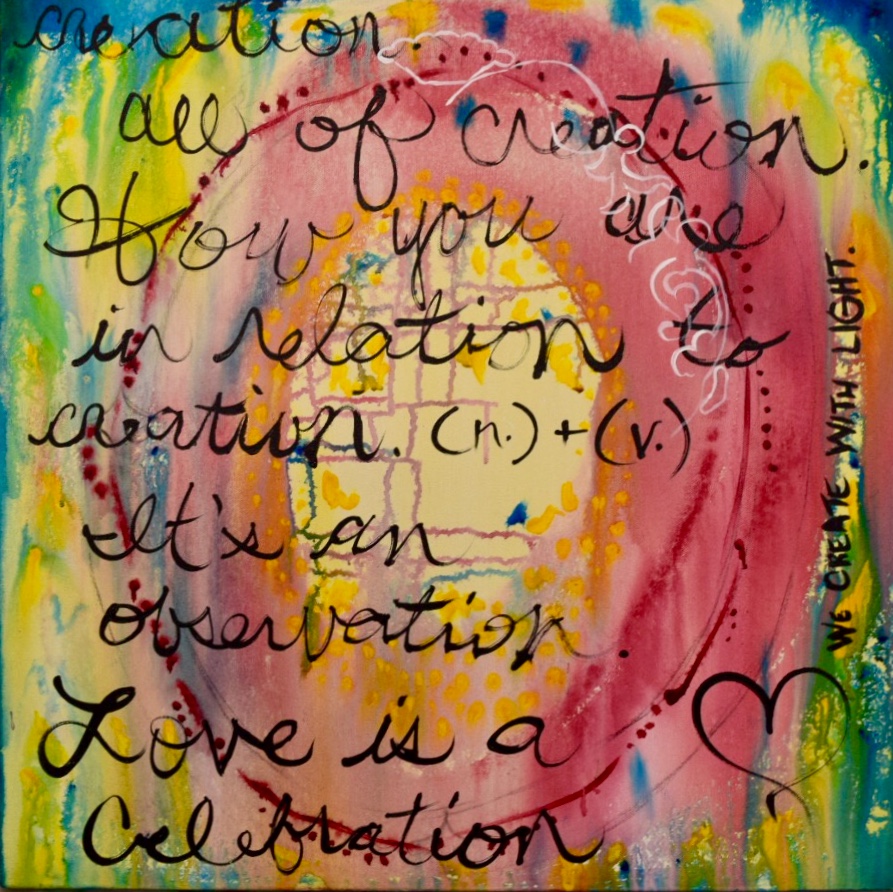 creation.
all of creation.
How you are
in relation to
creation. (n.) + (v.)
It's an
observation.
Love is a
Celebration
WE CREATE WITH LIGHT.